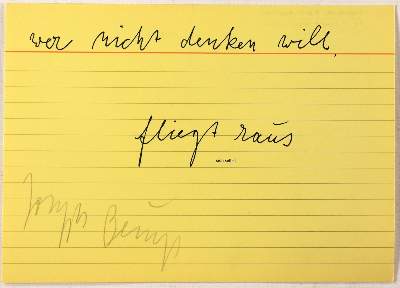 wer nicht denken will,
fliegt raus
Joseph Beuys